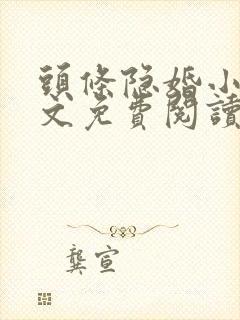 頭條隐婚小
文免費閱讀
龔宣